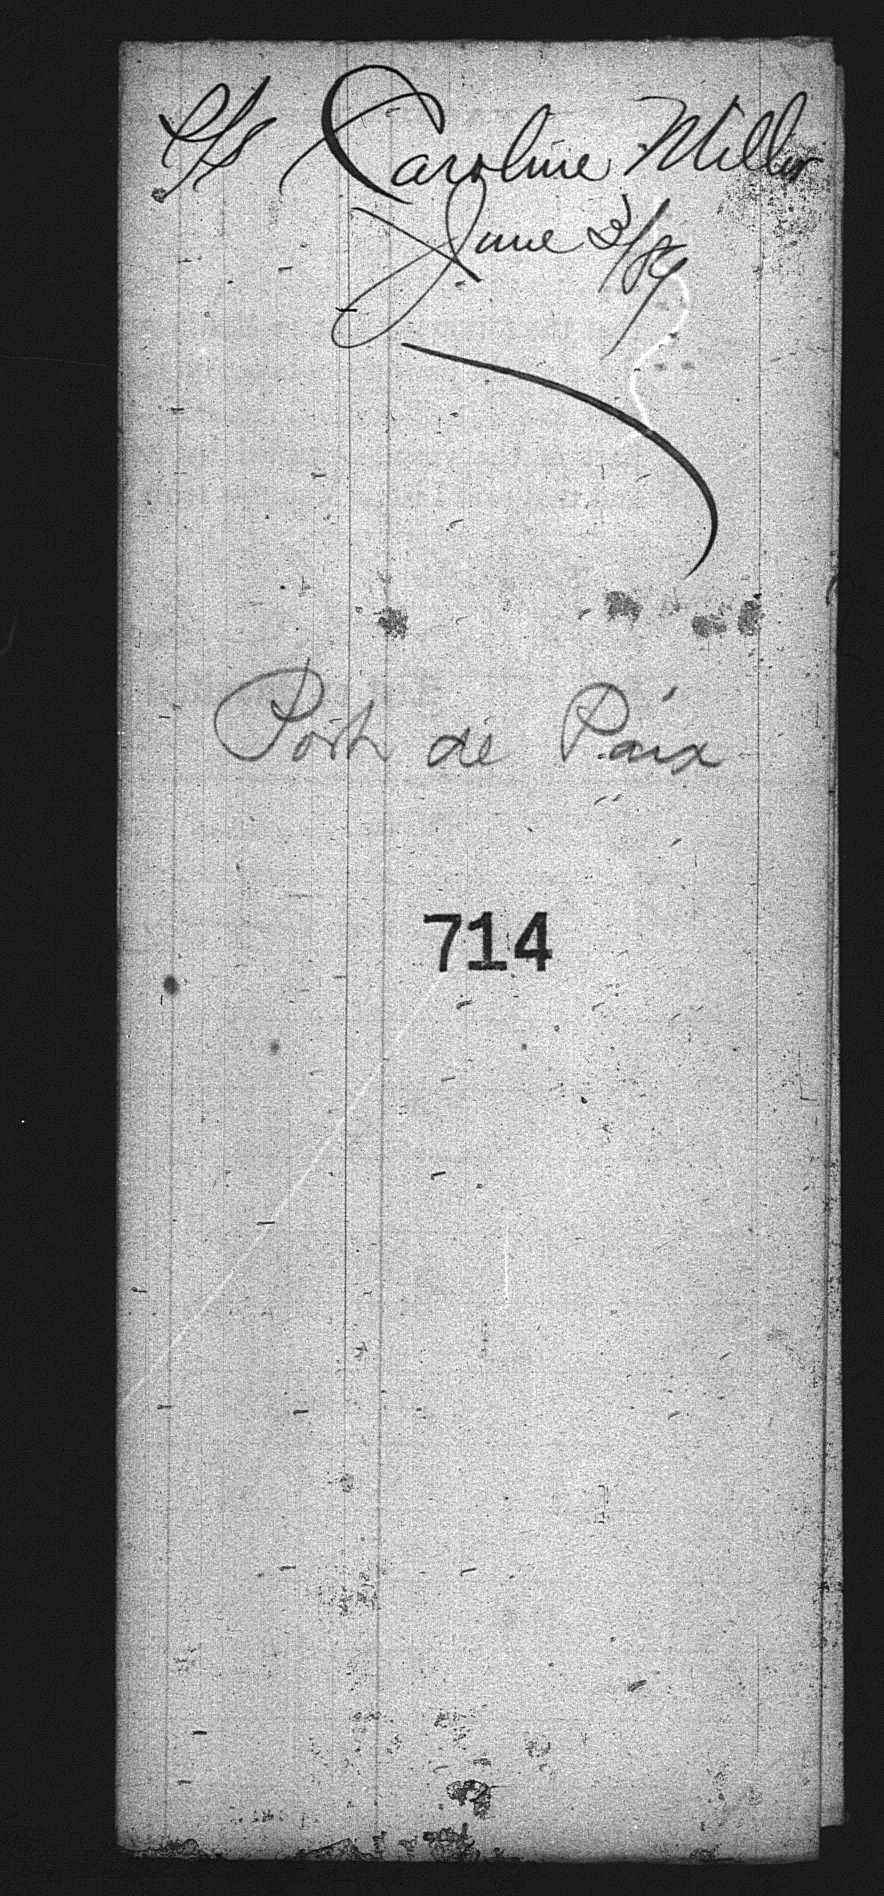 S/S Caroline Miller
June 3/89
Port de Paix
714